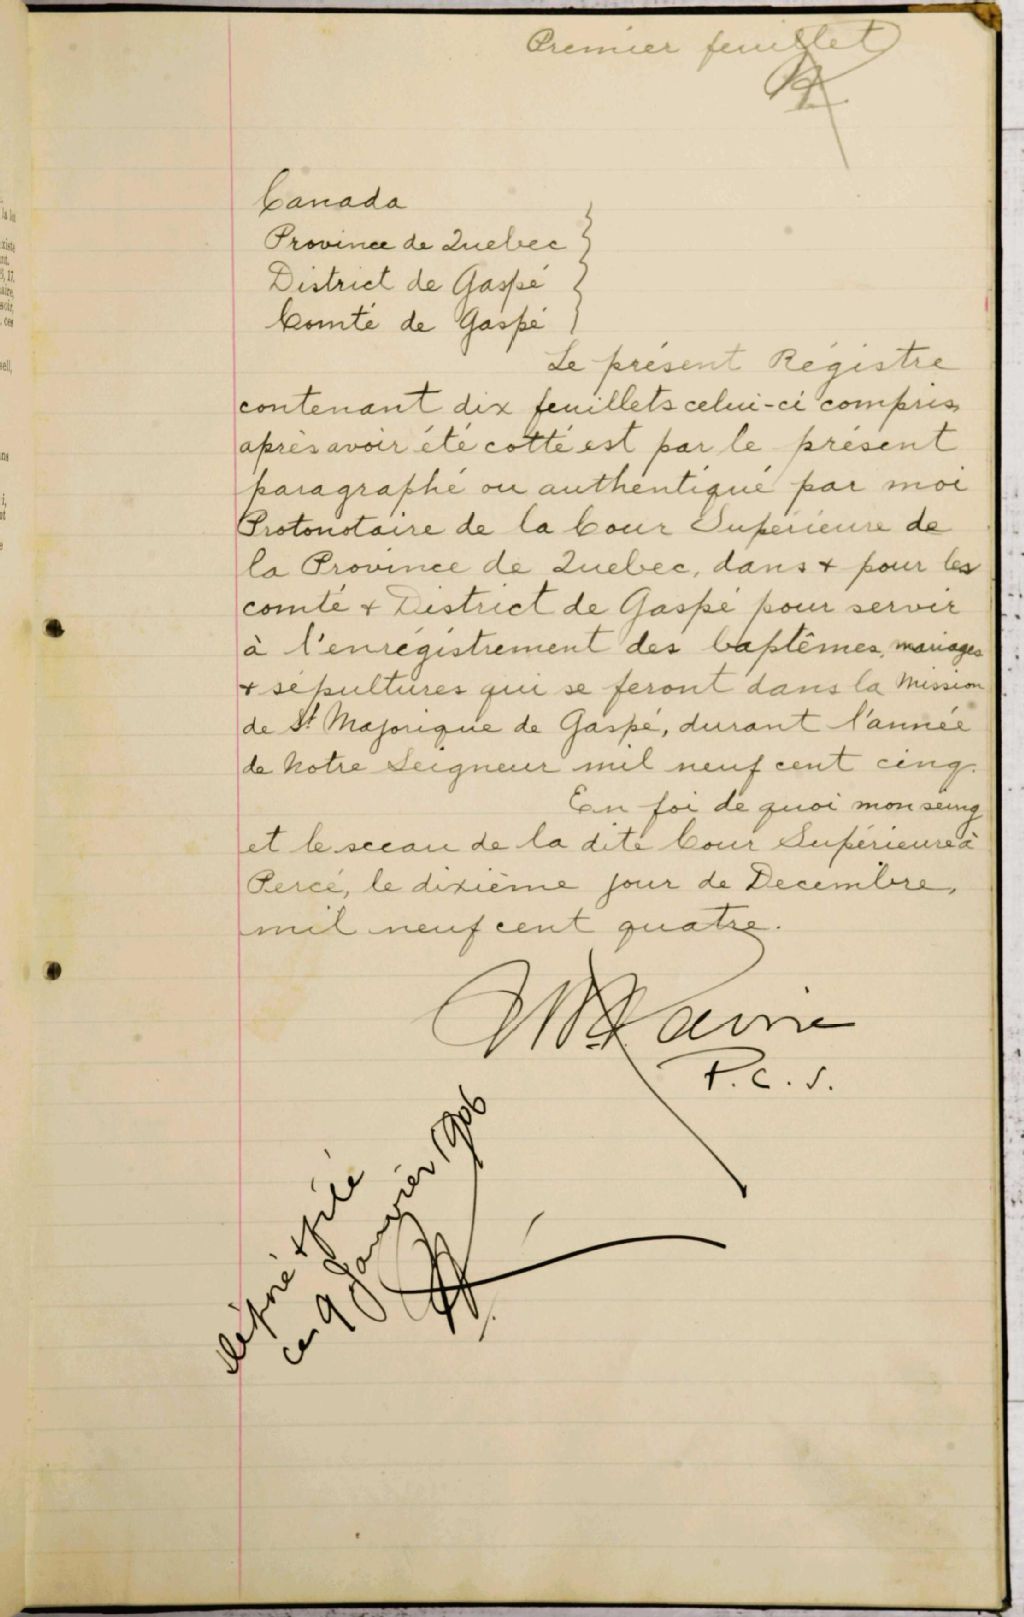 Premier feuillet
Canada
Province de Quebec
District de Gaspé
Comté de Gaspé
Le présent Régistre
contenant dix feuillets celui-ci compris,
après avoir été cotté est par le présent
paragraphé ou authentiqué par moi
Protonotaire de la Cour Supérieure de
la Province de Quebec, dans + pour les
comté + District de Gaspé pour servir
à l'enrégistrement des baptêmes, mariages
+ sépultures qui se feront dans la Mission
de St Majorique de Gaspé, durant l'année
de Notre Seigneur mil neuf cent cinq.
En foi de quoi mon seing
et le sceau de la dite Cour Supérieure à
Percé, le dixième jour de Decembre,
mil neuf cent quatre.
P.C.S.
déposé + filé
ce 9 Janvier 1906